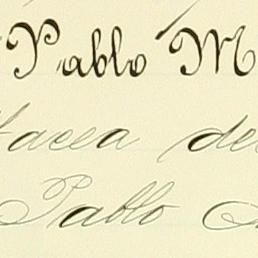 Pablo M
acea de
Pablo